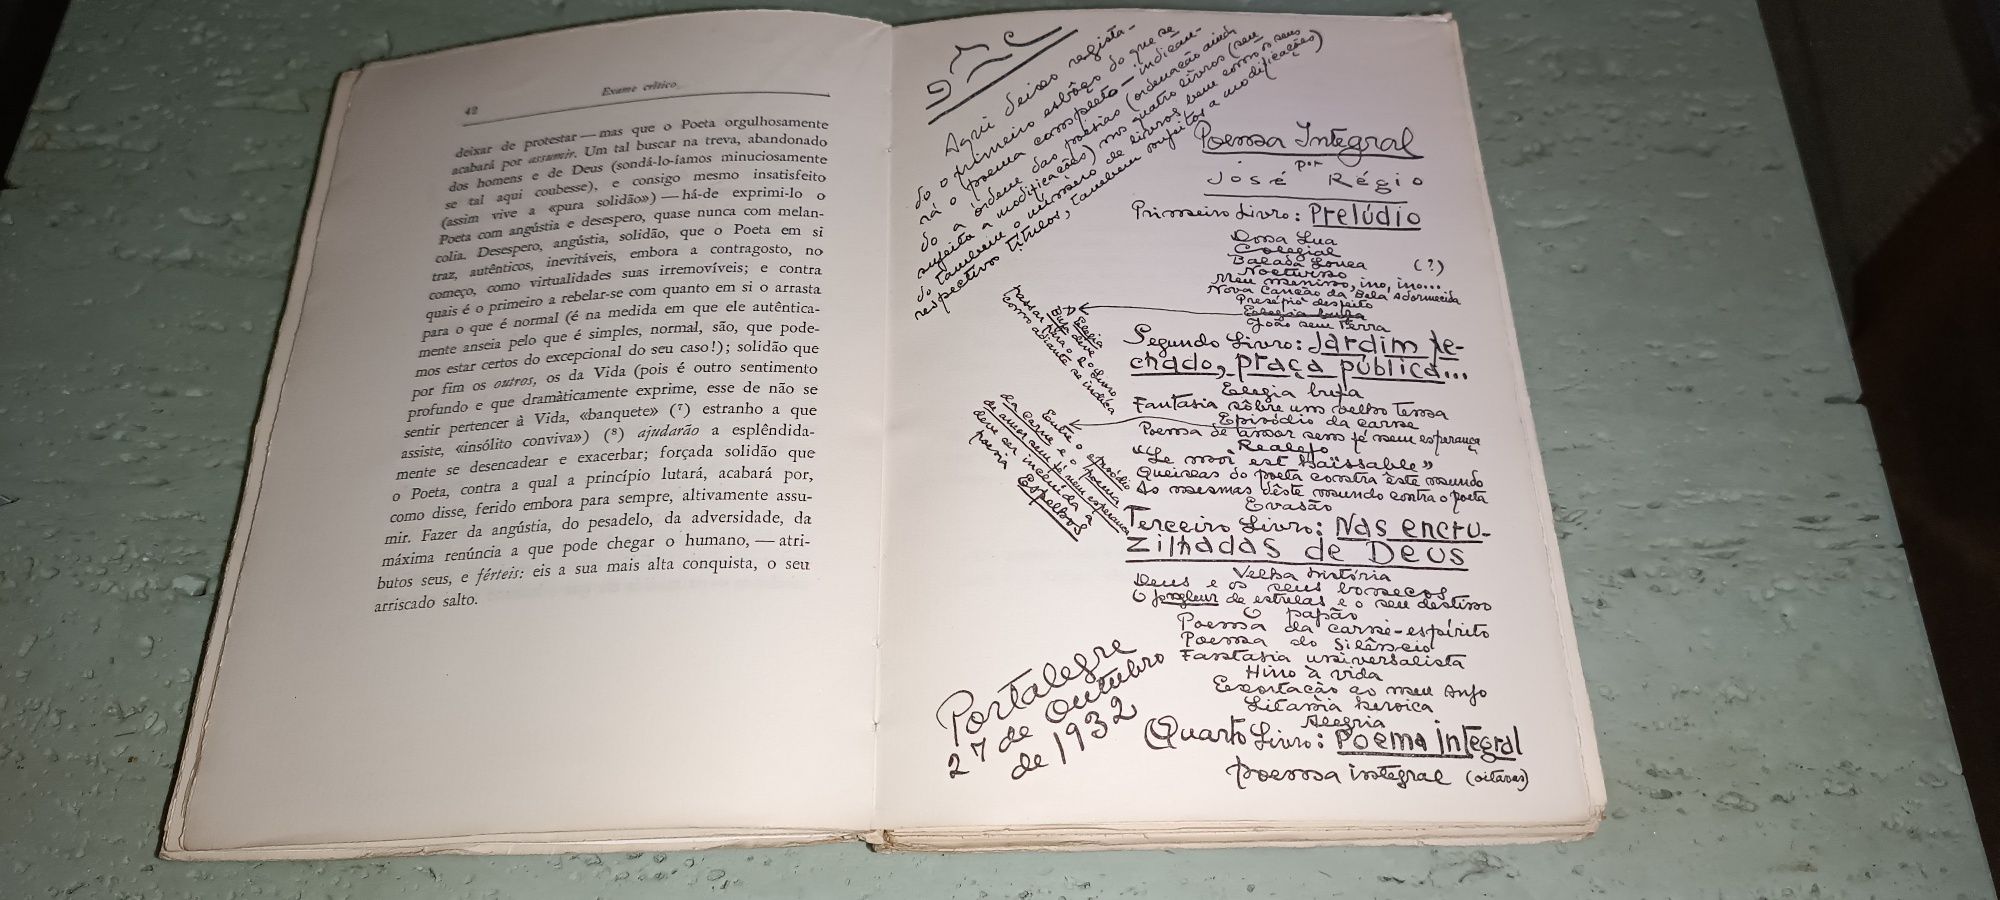 42
Exame crítico
deixar de protestar — mas que o Poeta orgulhosamente
acabará por assumir. Um tal buscar na treva, abandonado
dos homens e de Deus (sondá-lo-íamos minuciosamente
se tal aqui coubesse), e consigo mesmo insatisfeito
(assim vive a «pura solidão») — há-de exprimi-lo o
Poeta com angústia e desespero, quase nunca com melan-
colia. Desespero, angústia, solidão, que o Poeta em si
traz, autênticos, inevitáveis, embora a contragosto, no
começo, como virtualidades suas irremovíveis; e contra
quais é o primeiro a rebelar-se com quanto em si o arrasta
para o que é normal (é na medida em que ele autêntica-
mente anseia pelo que é simples, normal, são, que pode-
mos estar certos do excepcional do seu caso!); solidão que
por fim os outros, os da Vida (pois é outro sentimento
profundo e que dramàticamente exprime, esse de não se
sentir pertencer à Vida, «banquete» (⁷) estranho a que
assiste, «insólito conviva») (⁸) ajudarão a esplêndida-
mente se desencadear e exacerbar; forçada solidão que
o Poeta, contra a qual a princípio lutará, acabará por,
como disse, ferido embora para sempre, altivamente assu-
mir. Fazer da angústia, do pesadelo, da adversidade, da
máxima renúncia a que pode chegar o humano, — atri-
butos seus, e férteis: eis a sua mais alta conquista, o seu
arriscado salto.
Aqui deixo regista-
do o primeiro esbôço do que se-
rá o poema completo — indican-
do a ordem das poesias (ordenação ainda
sujeita a modificações) nos quatro livros (sen-
do também o número de livros, bem como os seus
respectivos títulos, também sujeitos a modificações)
Poema Integral
por
José Régio
Primeiro Livro: Prelúdio
Dona Lua
Colegial
Balada Louca (?)
Nocturno
Meu menino, ino, ino...
Nova Canção da Bela Adormecida
Presépio desfeito
Elegia bufa
João sem Terra
Elegia
Bufa deve
passar para o 2º Livro,
como adiante se indica
Segundo Livro: Jardim fe-
chado, praça pública...
Elegia bufa
Fantasia sôbre um velho tema
Episódio da carne
Poema de amor sem fé nem esperança
Realejo
«Le moi est haïssable»
Queixas do poeta contra êste mundo
As mesmas dêste mundo contra o poeta
Evasão
Entre o episódio
da carne e o poema
de amor sem fé nem esperança
deve ser incluída a
poesia Espelhos
Terceiro Livro: Nas encru-
zilhadas de Deus
Velha história
Deus e os seus bonecos
O jongleur de estrelas e o seu destino
O papão
Poema da carne-espírito
Poema do silêncio
Fantasia universalista
Hino à vida
Exortação ao meu Anjo
Litania heroica
Alegria
Quarto Livro: Poema integral
Poema integral (oitavas)
Portalegre
27 de Outubro
de 1932